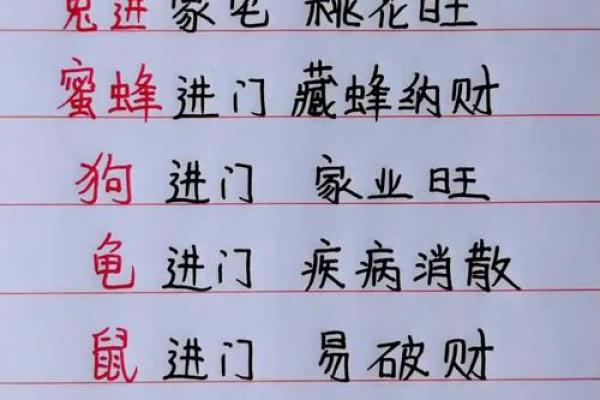 兔进家宅 桃花旺
蜜蜂进门 藏蜂纳财
狗进门 家业旺
龟进门 疾病消散
鼠进门 易破财